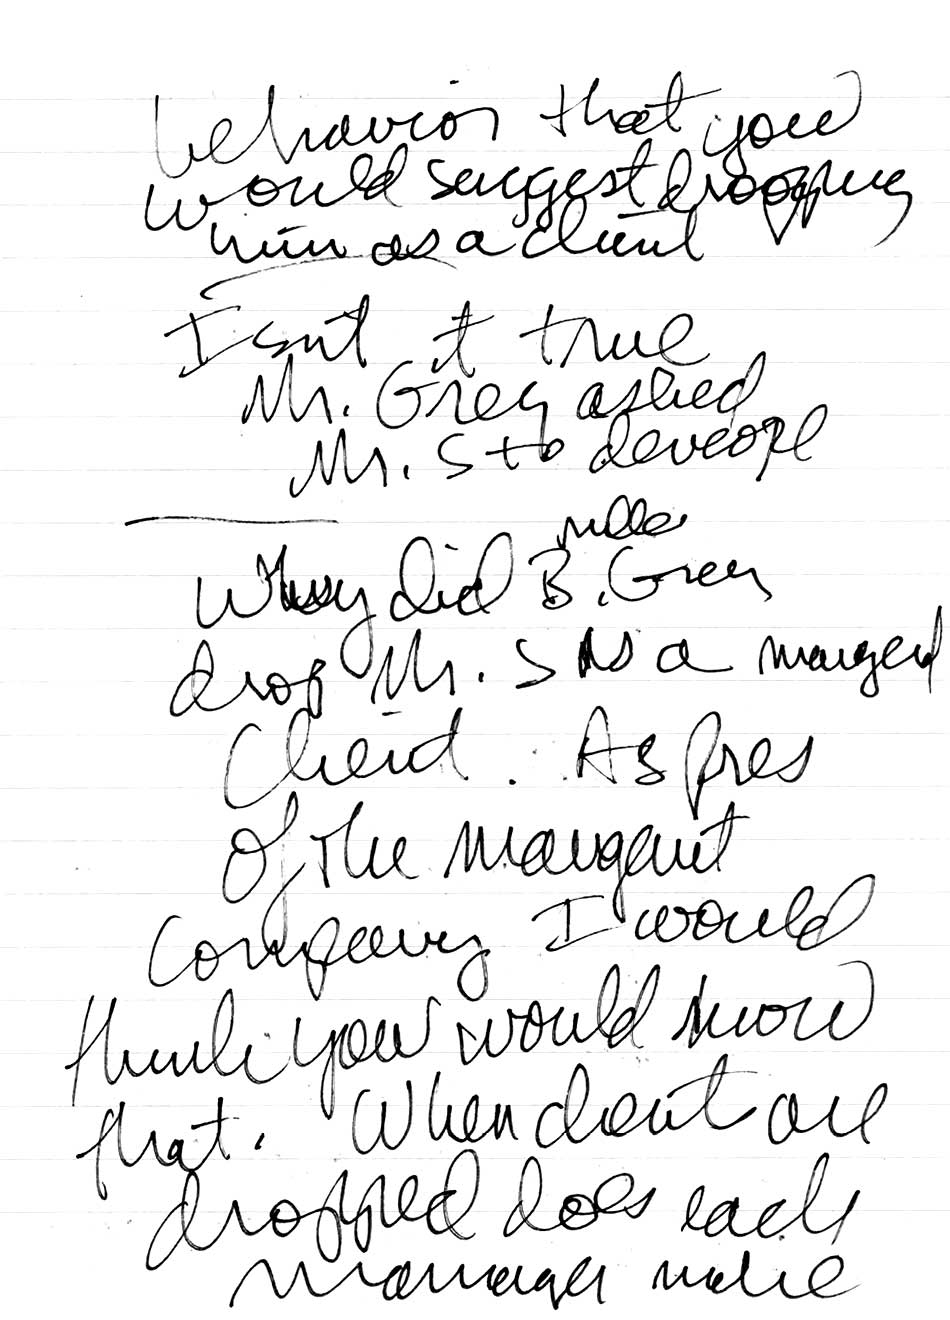 behavior that you
would suggest dropping
him as a client
Isnt it true
Mr. Grey asked
Mr. S to deveope
Why did B. Grey
drop Mr. S as a
Client. As pres
of the
Company I would
think you would know
that. When client are
dropped does each
manager make